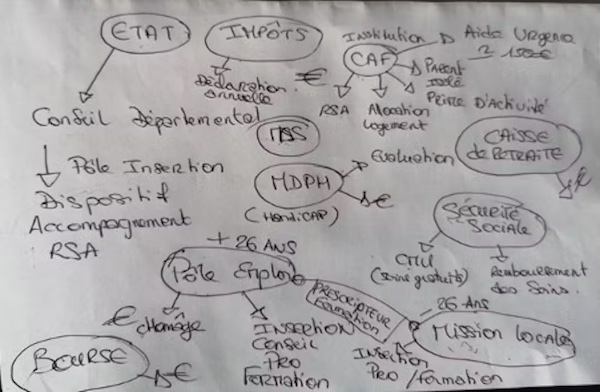 ETAT
IMPÔTS
Déclaration
annuelle
€
Institution
CAF
Aide Urgence
150€
Parent
isolé
Prime D'activité
RSA
Allocation
logement
Conseil Départemental
Pôle Insertion
Dispositif
Accompagnement
RSA
MDPH
(HANDICAP)
Evaluation
€
CAISSE
de RETRAITE
€
Sécurité
Sociale
CMU
(soins gratuits)
Remboursement
des Soins.
+ 26 ANS
Pôle Emploi
€ chômage
INSERTION
Conseil
PRO
FORMATION
PRESCRIPTEUR
Formation
- 26 Ans
Mission locale
Insertion
Pro / formation
BOURSE
€